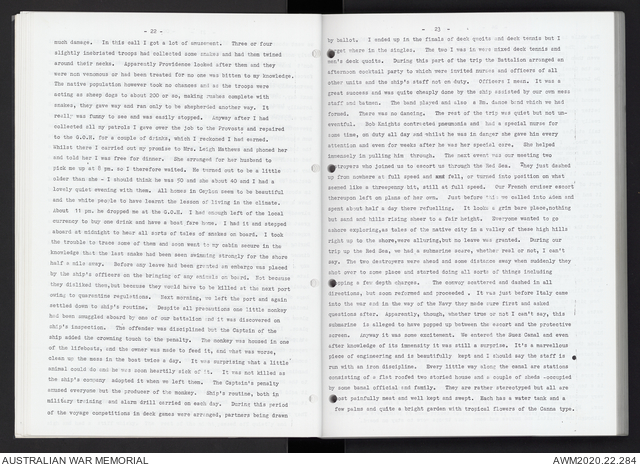 - 22 -
much damage. In this mall I got a lot of amusement. Three or four
slightly inebriated troops had collected some snakes and had them twined
around their necks. Apparently Providence looked after them and they
were non venomous or had been treated for no one was bitten to my knowledge.
The native population however took no chances and as the troops were
acting as sheep dogs to about 200 or so, making rushes complete with
snakes, they gave way and ran only to be shepherded another way. It
really was funny to see and was easily stopped. Anyway after I had
collected all my patrols I gave over the job to the Provosts and repaired
to the G.O.H. for a couple of drinks, which I reckoned I had earned.
Whilst there I carried out my promise to Mrs. Leigh Mathews and phoned her
and told her I was free for dinner. She arranged for her husband to
pick me up at 8 pm. so I therefore waited. He turned out to be a little
older than she - I should think he was 50 and she about 40 and I had a
lovely quiet evening with them. All homes in Ceylon seem to be beautiful
and the white people to have learnt the lesson of living in the climate.
About 11 pm. he dropped me at the G.O.H. I had enough left of the local
currency to buy one drink and have a boat fare home. I had it and stepped
aboard at midnight to hear all sorts of tales of snakes on board. I took
the trouble to trace some of them and soon went to my cabin secure in the
knowledge that the last snake had been seen swimming strongly for the shore
half a mile away. Before any leave had been granted an embargo was placed
by the ship's officers on the bringing of any animals on board. Not because
they disliked them, but because they would have to be killed at the next port
owing to quarantine regulations. Next morning, we left the port and again
settled down to ship's routine. Despite all precautions one little monkey
had been smuggled aboard by one of our battalion and it was discovered on
ship's inspection. The offender was disciplined but the Captain of the
ship added the crowning touch to the penalty. The monkey was housed in one
of the lifeboats, and the owner was made to feed it, and what was worse,
clean up the mess in the boat twice a day. It was surprising what a little
animal could do and he was soon heartily sick of it. It was not killed as
the ship's company adopted it when we left them. The Captain's penalty
amused everyone but the producer of the monkey. Ship's routine, both in
military training and alarm drill carried on each day. During this period
of the voyage competitions in deck games were arranged, partners being drawn
- 23 -
by ballot. I ended up in the finals of deck quoits and deck tennis but I
forget where in the singles. The two I was in were mixed deck tennis and
men's deck quoits. During this part of the trip the Battalion arranged an
afternoon cocktail party to which were invited nurses and officers of all
other units and the ship's staff not on duty. Officers I mean. It was a
great success and was quite cheaply done by the ship assisted by our own mess
staff and batmen. The band played and also a Bn. dance band which we had
formed. There was no dancing. The rest of the trip was quiet but not un-
eventful. Bob Knights contracted pneumonia and had a special nurse for
some time, on duty all day and whilst he was in danger she gave him every
attention and even for weeks after he was her special care. She helped
immensely in pulling him through. The next event was our meeting two
destroyers who joined us to escort us through the Red Sea. They just dashed
up from nowhere at full speed and fell, or turned into position on what
seemed like a threepenny bit, still at full speed. Our French cruiser escort
thereupon left on plans of her own. Just before this we called into Aden and
spent about half a day there refuelling. It looks a grim bare place, nothing
but sand and hills rising sheer to a fair height. Everyone wanted to go
ashore exploring, as tales of the native city in a valley of these high hills
right up to the shore, were alluring, but no leave was granted. During our
trip up the Red Sea, we had a submarine scare, whether real or not, I can't
say. The two destroyers were ahead and some distance away when suddenly they
shot over to some place and started doing all sorts of things including
dropping a few depth charges. The convoy scattered and dashed in all
directions, but soon reformed and proceeded. It was just before Italy came
into the war and in the way of the Navy they made sure first and asked
questions after. Apparently, though, whether true or not I can't say, this
submarine is alleged to have popped up between the escort and the protective
screen. Anyway it was some excitement. We entered the Suez Canal and even
after knowledge of its immensity it was still a surprise. It's a marvellous
piece of engineering and is beautifully kept and I should say the staff is
run with an iron discipline. Every little way along the canal are stations
consisting of a flat roofed two storied house and a couple of sheds - occupied
by some canal official and family. They are rather stereotyped but all are
most painfully neat and well kept and swept. Each has a water tank and a
few palms and quite a bright garden with tropical flowers of the Canna type.
AUSTRALIAN WAR MEMORIAL
AWM2020.22.284